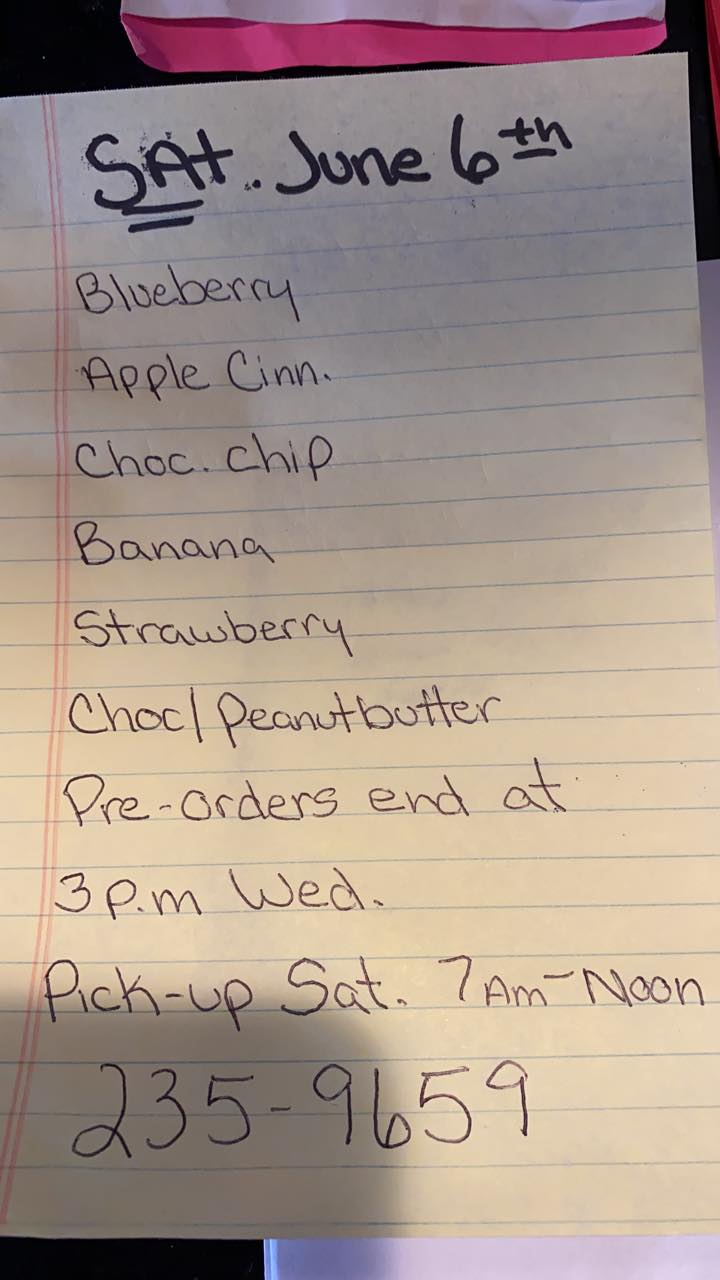 SAt. June 6th
Blueberry
Apple Cinn.
Choc. Chip
Banana
Strawberry
Choc/Peanutbutter
Pre-orders end at
3 p.m Wed.
Pick-up Sat. 7Am-Noon
235-9659